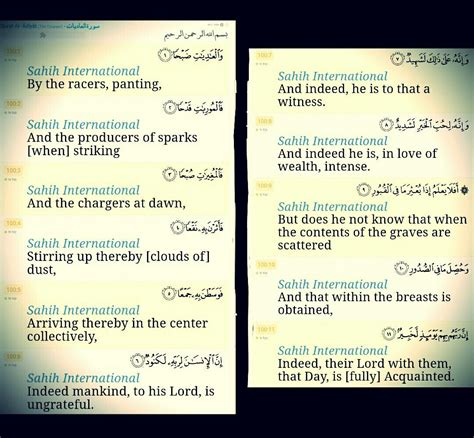 سورة العاديات
بسم الله الرحمن الرحيم
100:1
وَالْعَٰدِيَٰتِ ضَبْحًا ١
Sahih International
By the racers, panting,
100:2
فَالْمُورِيَٰتِ قَدْحًا ٢
Sahih International
And the producers of sparks
[when] striking
100:3
فَالْمُغِيرَٰتِ صُبْحًا ٣
Sahih International
And the chargers at dawn,
100:4
فَأَثَرْنَ بِهِۦ نَقْعًا ٤
Sahih International
Stirring up thereby [clouds of]
dust,
100:5
فَوَسَطْنَ بِهِۦ جَمْعًا ٥
Sahih International
Arriving thereby in the center
collectively,
100:6
إِنَّ الْإِنسَٰنَ لِرَبِّهِۦ لَكَنُودٌ ٦
Sahih International
Indeed mankind, to his Lord, is
ungrateful.
100:7
وَإِنَّهُۥ عَلَىٰ ذَٰلِكَ لَشَهِيدٌ ٧
Sahih International
And indeed, he is to that a
witness.
100:8
وَإِنَّهُۥ لِحُبِّ الْخَيْرِ لَشَدِيدٌ ٨
Sahih International
And indeed he is, in love of
wealth, intense.
100:9
أَفَلَا يَعْلَمُ إِذَا بُعْثِرَ مَا فِي الْقُبُورِ ٩
Sahih International
But does he not know that when
the contents of the graves are
scattered
100:10
وَحُصِّلَ مَا فِي الصُّدُورِ ١٠
Sahih International
And that within the breasts is
obtained,
100:11
إِنَّ رَبَّهُم بِهِمْ يَوْمَئِذٍ لَّخَبِيرٌ ١١
Sahih International
Indeed, their Lord with them,
that Day, is [fully] Acquainted.